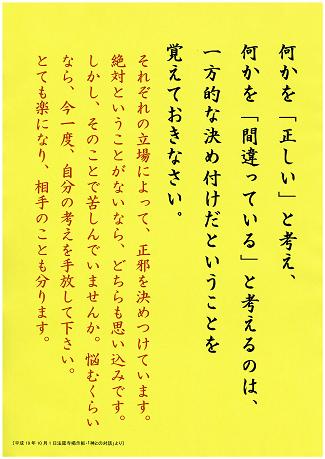 何かを「正しい」と考え、
何かを「間違っている」と考えるのは、
一方的な決め付けだということを
覚えておきなさい。
それぞれの立場によって、正邪を決めつけています。
絶対ということがないなら、どちらも思い込みです。
しかし、そのことで苦しんでいませんか。悩むくらい
なら、今一度、自分の考えを手放して下さい。
とても楽になり、相手のことも分ります。
【平成19年10月1日法蔵寺掲示板・「神との対話」より】